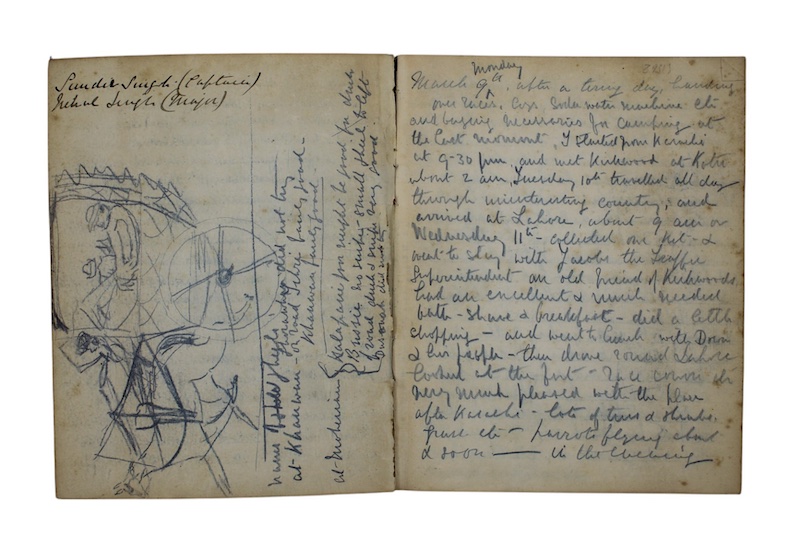 Sunder Singh (Captain)
Nehal Singh (Major)
names of
at Khanwan - on road Sehri fairly good -
Khanwan fairly good -
at Moherrium Kalapani poor might be good for duck
Brissic no snipe - small sheel to left
of road duck & snipe very good
Monday
March 9th, after a tiring day, handing
over races, Soda water machine etc
and buying necessaries for camping at
the last moment, I started from Karachi
at 9-30 pm, and met Kirkwood at Kotri
about 2 am, Tuesday 10th travelled all day
through uninteresting country, and
arrived at Lahore, about 9 am on
Wednesday 11th - collected our kit - &
went to stay with Jacobs the Traffic
Superintendent an old friend of Kirkwoods,
had an excellent & much needed
bath - shave & breakfast - did a little
shopping - and went to lunch with
& his people - then drove round Lahore
looked at the fort - race course etc
very much pleased with the place
after Karachi - lots of trees & shrubs,
grass etc - parrots flying about
& soon - in the evening